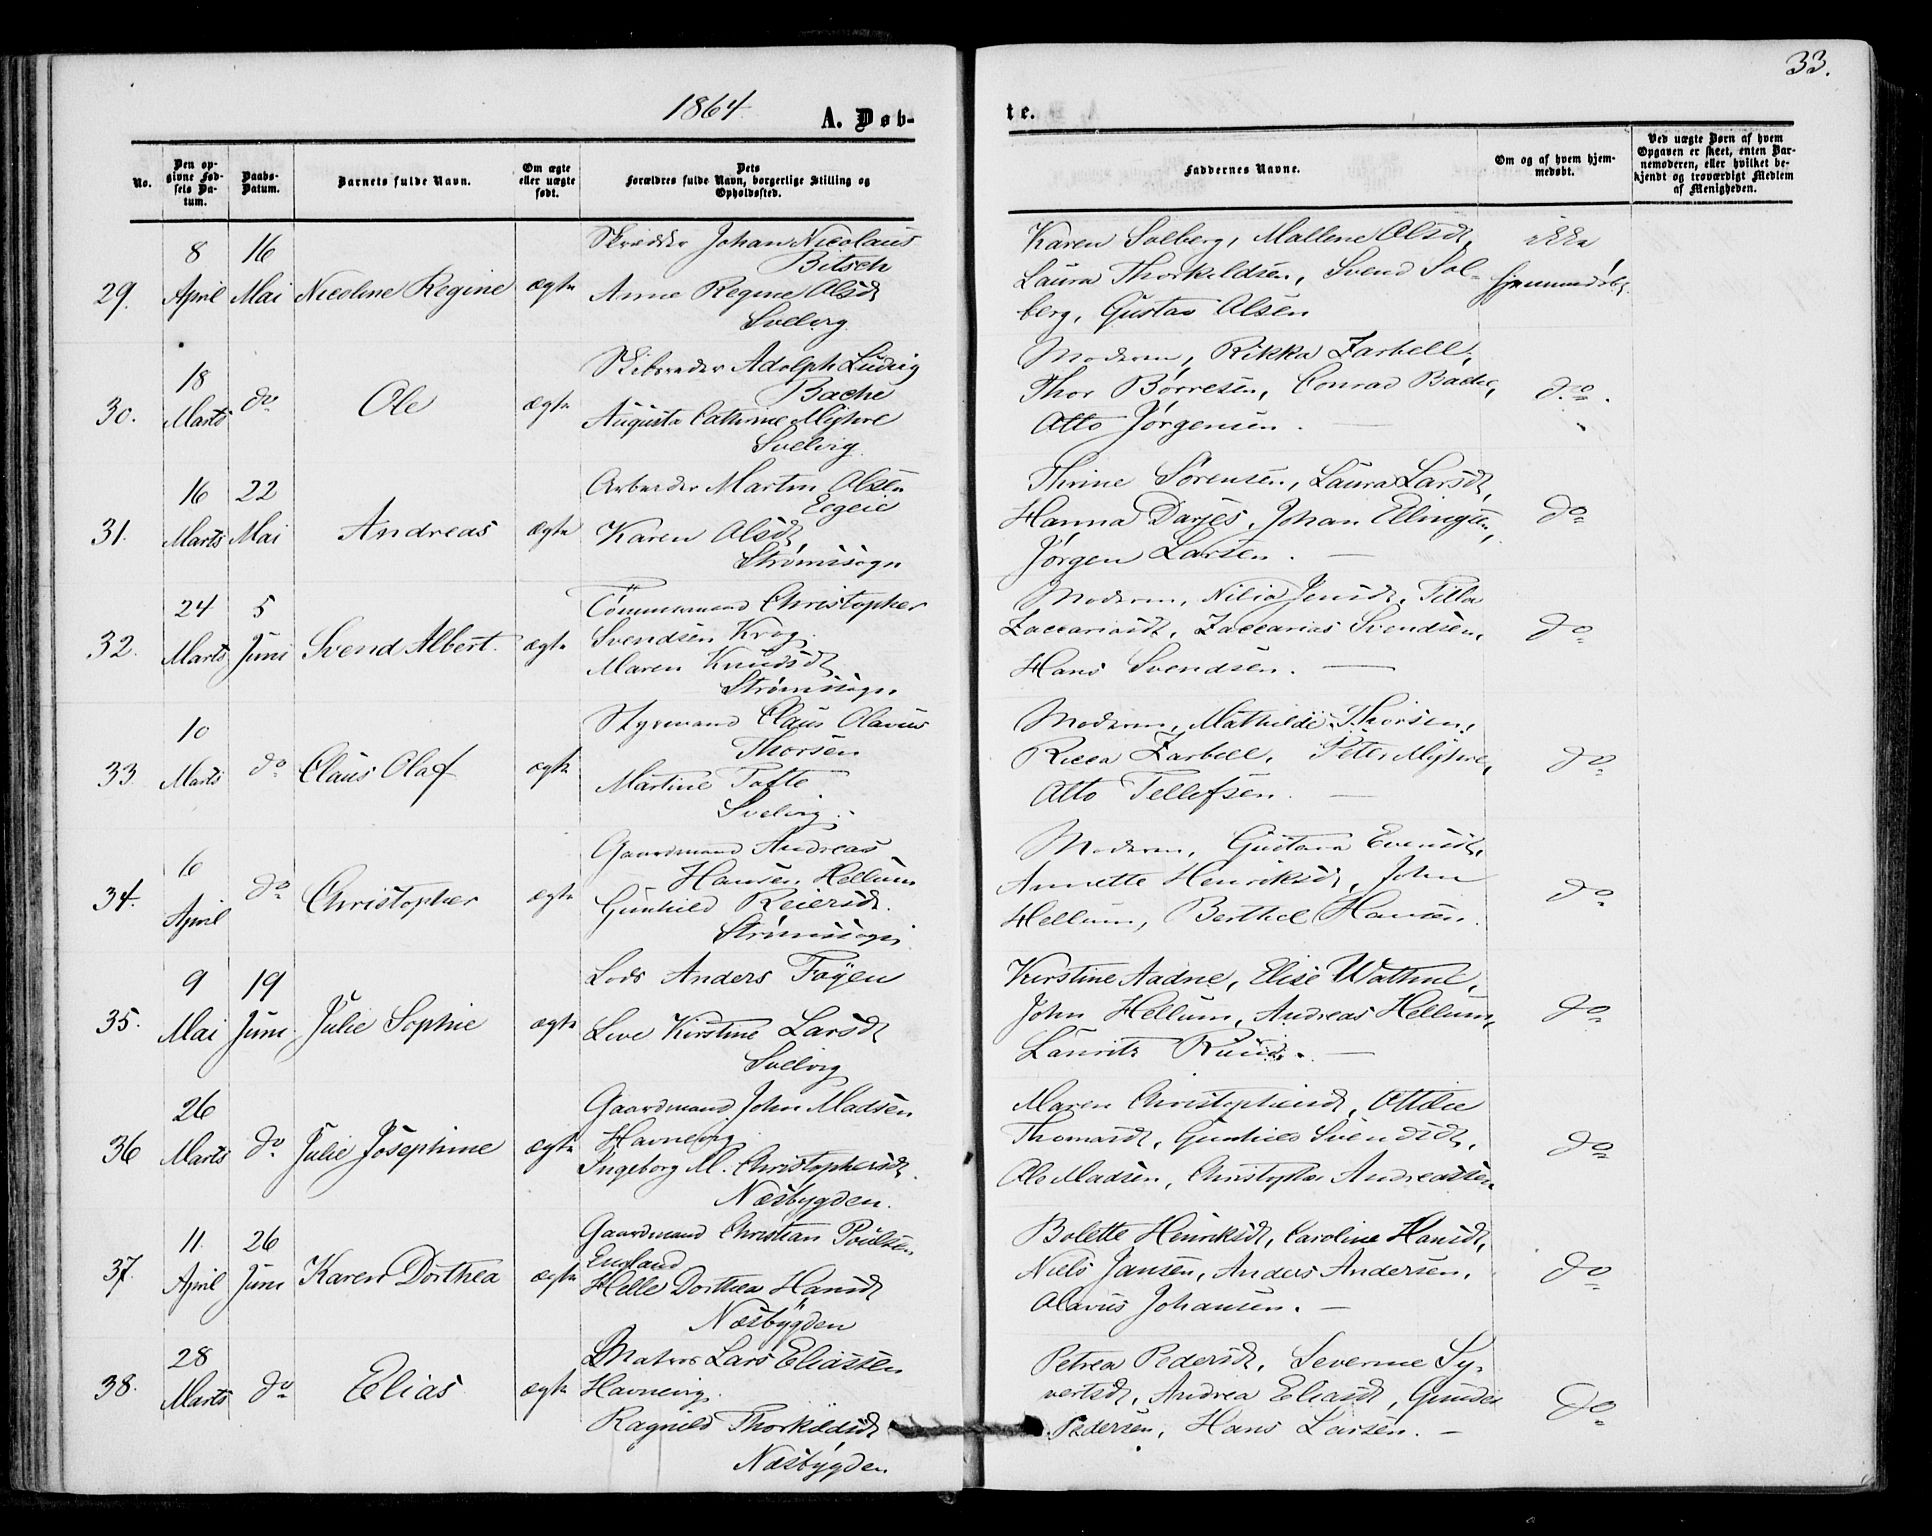 33.
1864.
A. Døb-
te.
No.
Den op-
givne Fød-
sels Da-
tum.
Daabs-
Datum.
Barnets fulde Navn.
Om ægte
eller uægte
født.
Dets
Forældres fulde Navn, borgerlige Stilling og
Opholdssted.
Faddernes Navne.
Om og af hvem hjem-
medøbt.
Ved uægte Børn af hvem
Opgaven er skeet, enten Bar-
nemoderen, eller hvilket be-
kjendt og troværdigt Medlem
af Menigheden.
29. 8 April 16 Mai Nicoline Regine ægte
Skrædder Johan Nicolaus
Bitsch
Anne Regine Olsdt
Svelvig
Karen Solberg, Mallene Olsdt,
Laura Thorkildsen, Svend Sol-
berg, Gustav Olsen
ikke
hjemmedøbt.
30. 18 Marts do Ole ægte
Skibsreder Adolph Ludvig
Bache
Augusta Cathrine Myhre
Svelvig
Moderen, Rikka Zarbell,
Thor Børresen, Conrad Bache,
Otto Jørgensen.
do.
31. 16 Marts 22 Mai Andreas ægte
Arbeider Martin Olsen
Eegeie
Karen Olsdt
Strømssogn
Thrine Sørensen, Laura Larsdt,
Hanna Darjes, Johan Ellingsen,
Jørgen Larsen.
do
32. 24 Marts 5 Juni Svend Albert. ægte
Tømmermand Christopher
Svendsen Krog
Maren Knudsdt
Strømssogn
Moderen, Nilia Jensdt, Tilla
Zaccariasdt, Zaccarias Svendsen,
Hans Svendsen.
do
33. 10 Marts do Claus Olaf ægte
Styrmand Claus Olavus
Thorsen
Martine Tofte
Svelvig.
Moderen, Mathilde Thorsen,
Ricca Zarbell, Peter Myhre,
Otto Tellefsen.
do
34. 6 April do Christopher ægte
Gaardmand Andreas
Hansen Hellum
Gunhild Reiersdt.
Strømssogn
Moderen, Gustava Evensdt,
Annette Henriksdt, John
Hellum, Berthel Hansen.
do
35. 9 Mai 19 Juni Julie Sophie ægte
Lods Anders Føyen
Live Kirstine Larsdt
Svelvig
Kirstine Aadne, Elise Wathne,
John Hellum, Andreas Hellum,
Laurits Ruud.
do
36 26 Marts do Julie Josephine ægte
Gaardmand John Madsen
Havnevig
Ingeborg M. Christophersdt.
Næsbygden.
Maren Christophersdt, Ottilie
Thomasdt, Gunhild Svendsdt,
Ole Madsen, Christopher Andreassen
do
37. 11. April 26 Juni Karen Dorthea ægte
Gaardmand Christian Poulsen
England
Helle Dorthea Hansdt
Næsbygden
Bolette Henriksdt, Caroline Hansdt,
Niels Jansen, Anders Andersen,
Olavus Johansen.
do
38. 28 Marts do Elias ægte
Matros Lars Eliassen
Havnevig.
Ragnild Thorkildsdt
Næsbygden
Petrea Pedersdt, Severine Sy-
vertsdt, Andrea Eliasdt, Gunder
Pedersen, Hans Larsen.
do